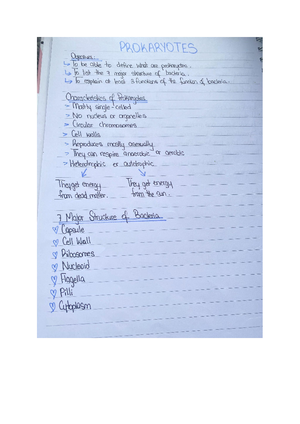 PROKARYOTES
Objectives:
To be able to define what are prokaryotes.
To list the 7 major structure of bacteria.
To explain at least 3 functions of the function of bacteria.
Characteristics of Prokaryotes
- Mostly single-celled
- No nucleus or organelles
- Circular chromosomes
- Cell walls
- Reproduces mostly asexually
- They can respire anaerobic or aerobic
- Heterotrophic or autotrophic
They get energy They get energy
from dead matter. from the sun.
7 Major Structure of Bacteria
Capsule
Cell Wall
Ribosomes
Nucleoid
Flagella
Pilli
Cytoplasm